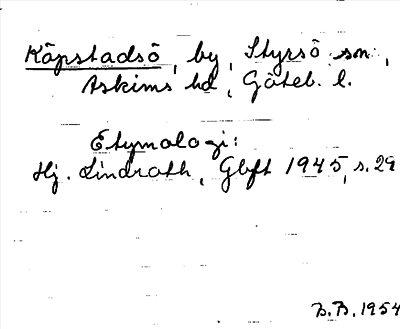 Köpstadsö, by, Styrsö sn,
Askims hd, Göteb. l.
Etymologi:
Hj. Lindroth, Gbft 1945, s. 29
B.B. 1954